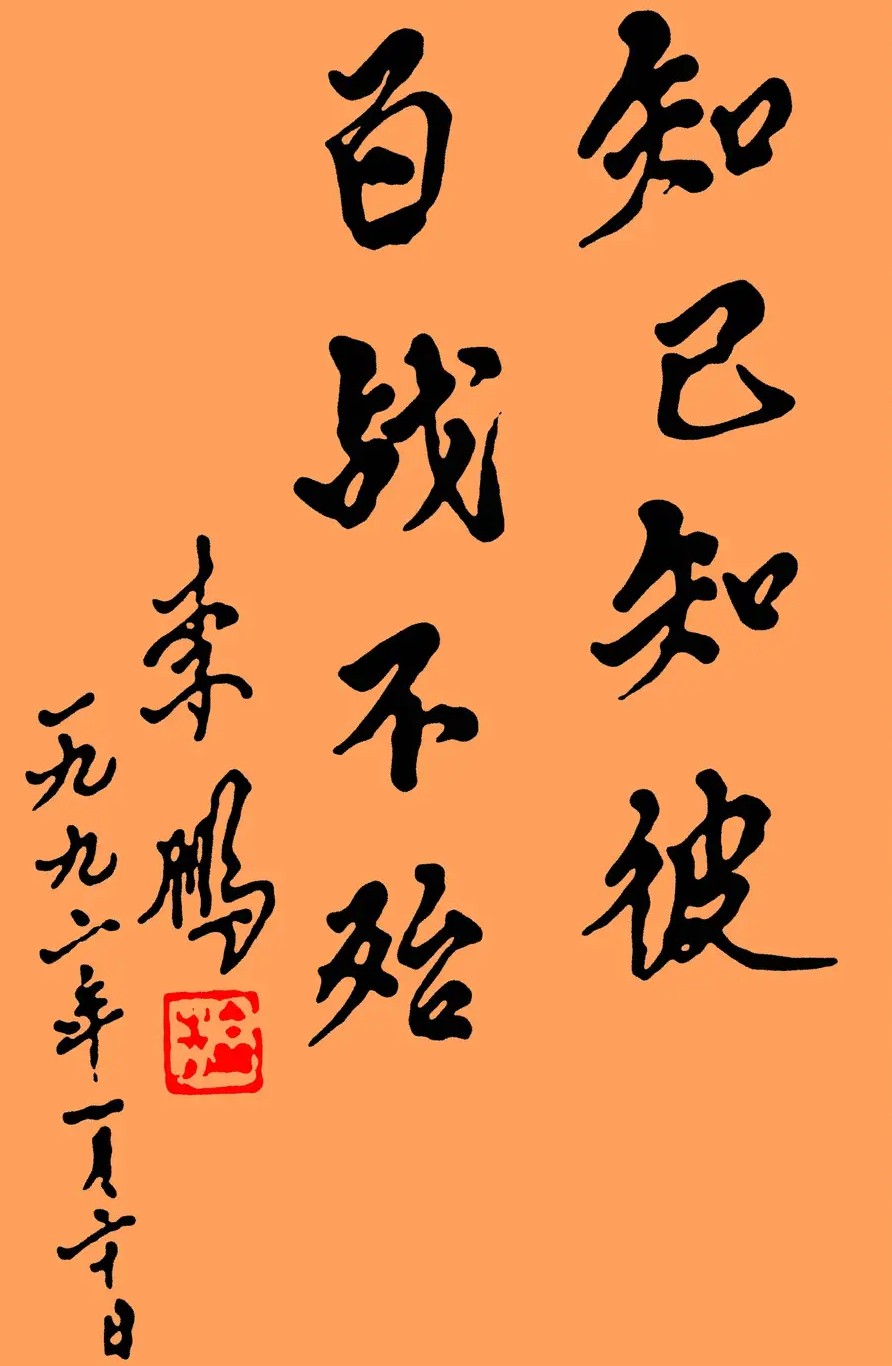 知己知彼
百战不殆
李鹏
一九九二年一月二十日